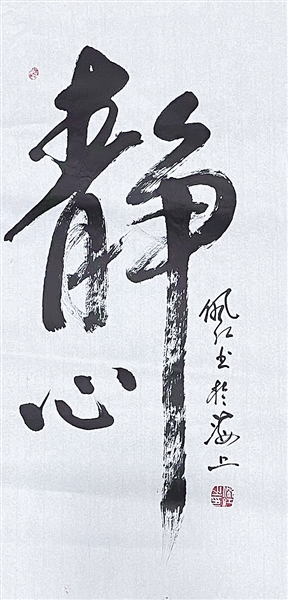 静心
佩红书於海上